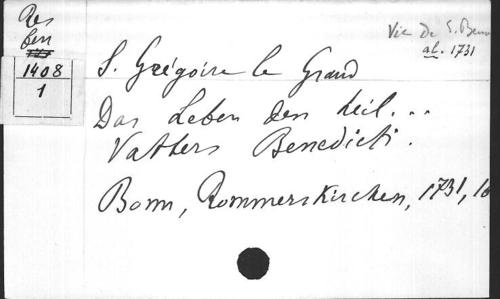 Res
ben
1408
1
Vie de S. Ben
al. 1731
S. Grégoire le Grand
Das Leben den heil...
Vatters Benedicti.
Bonn, Rommerskirchen, 1731,